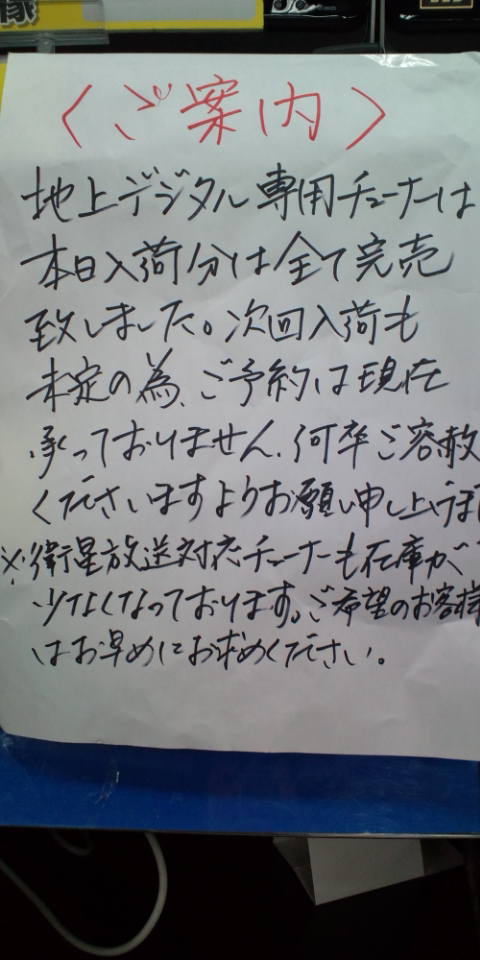 像
〈ご案内〉
地上デジタル専用チューナーは
本日入荷分は全て完売
致しました。次回入荷も
未定の為、ご予約は現在
承っておりません。何卒ご容赦
くださいますようお願い申し上げま
※衛星放送対応チューナーも在庫が
少なくなっております。ご希望のお客様
はお早めにお求めください。